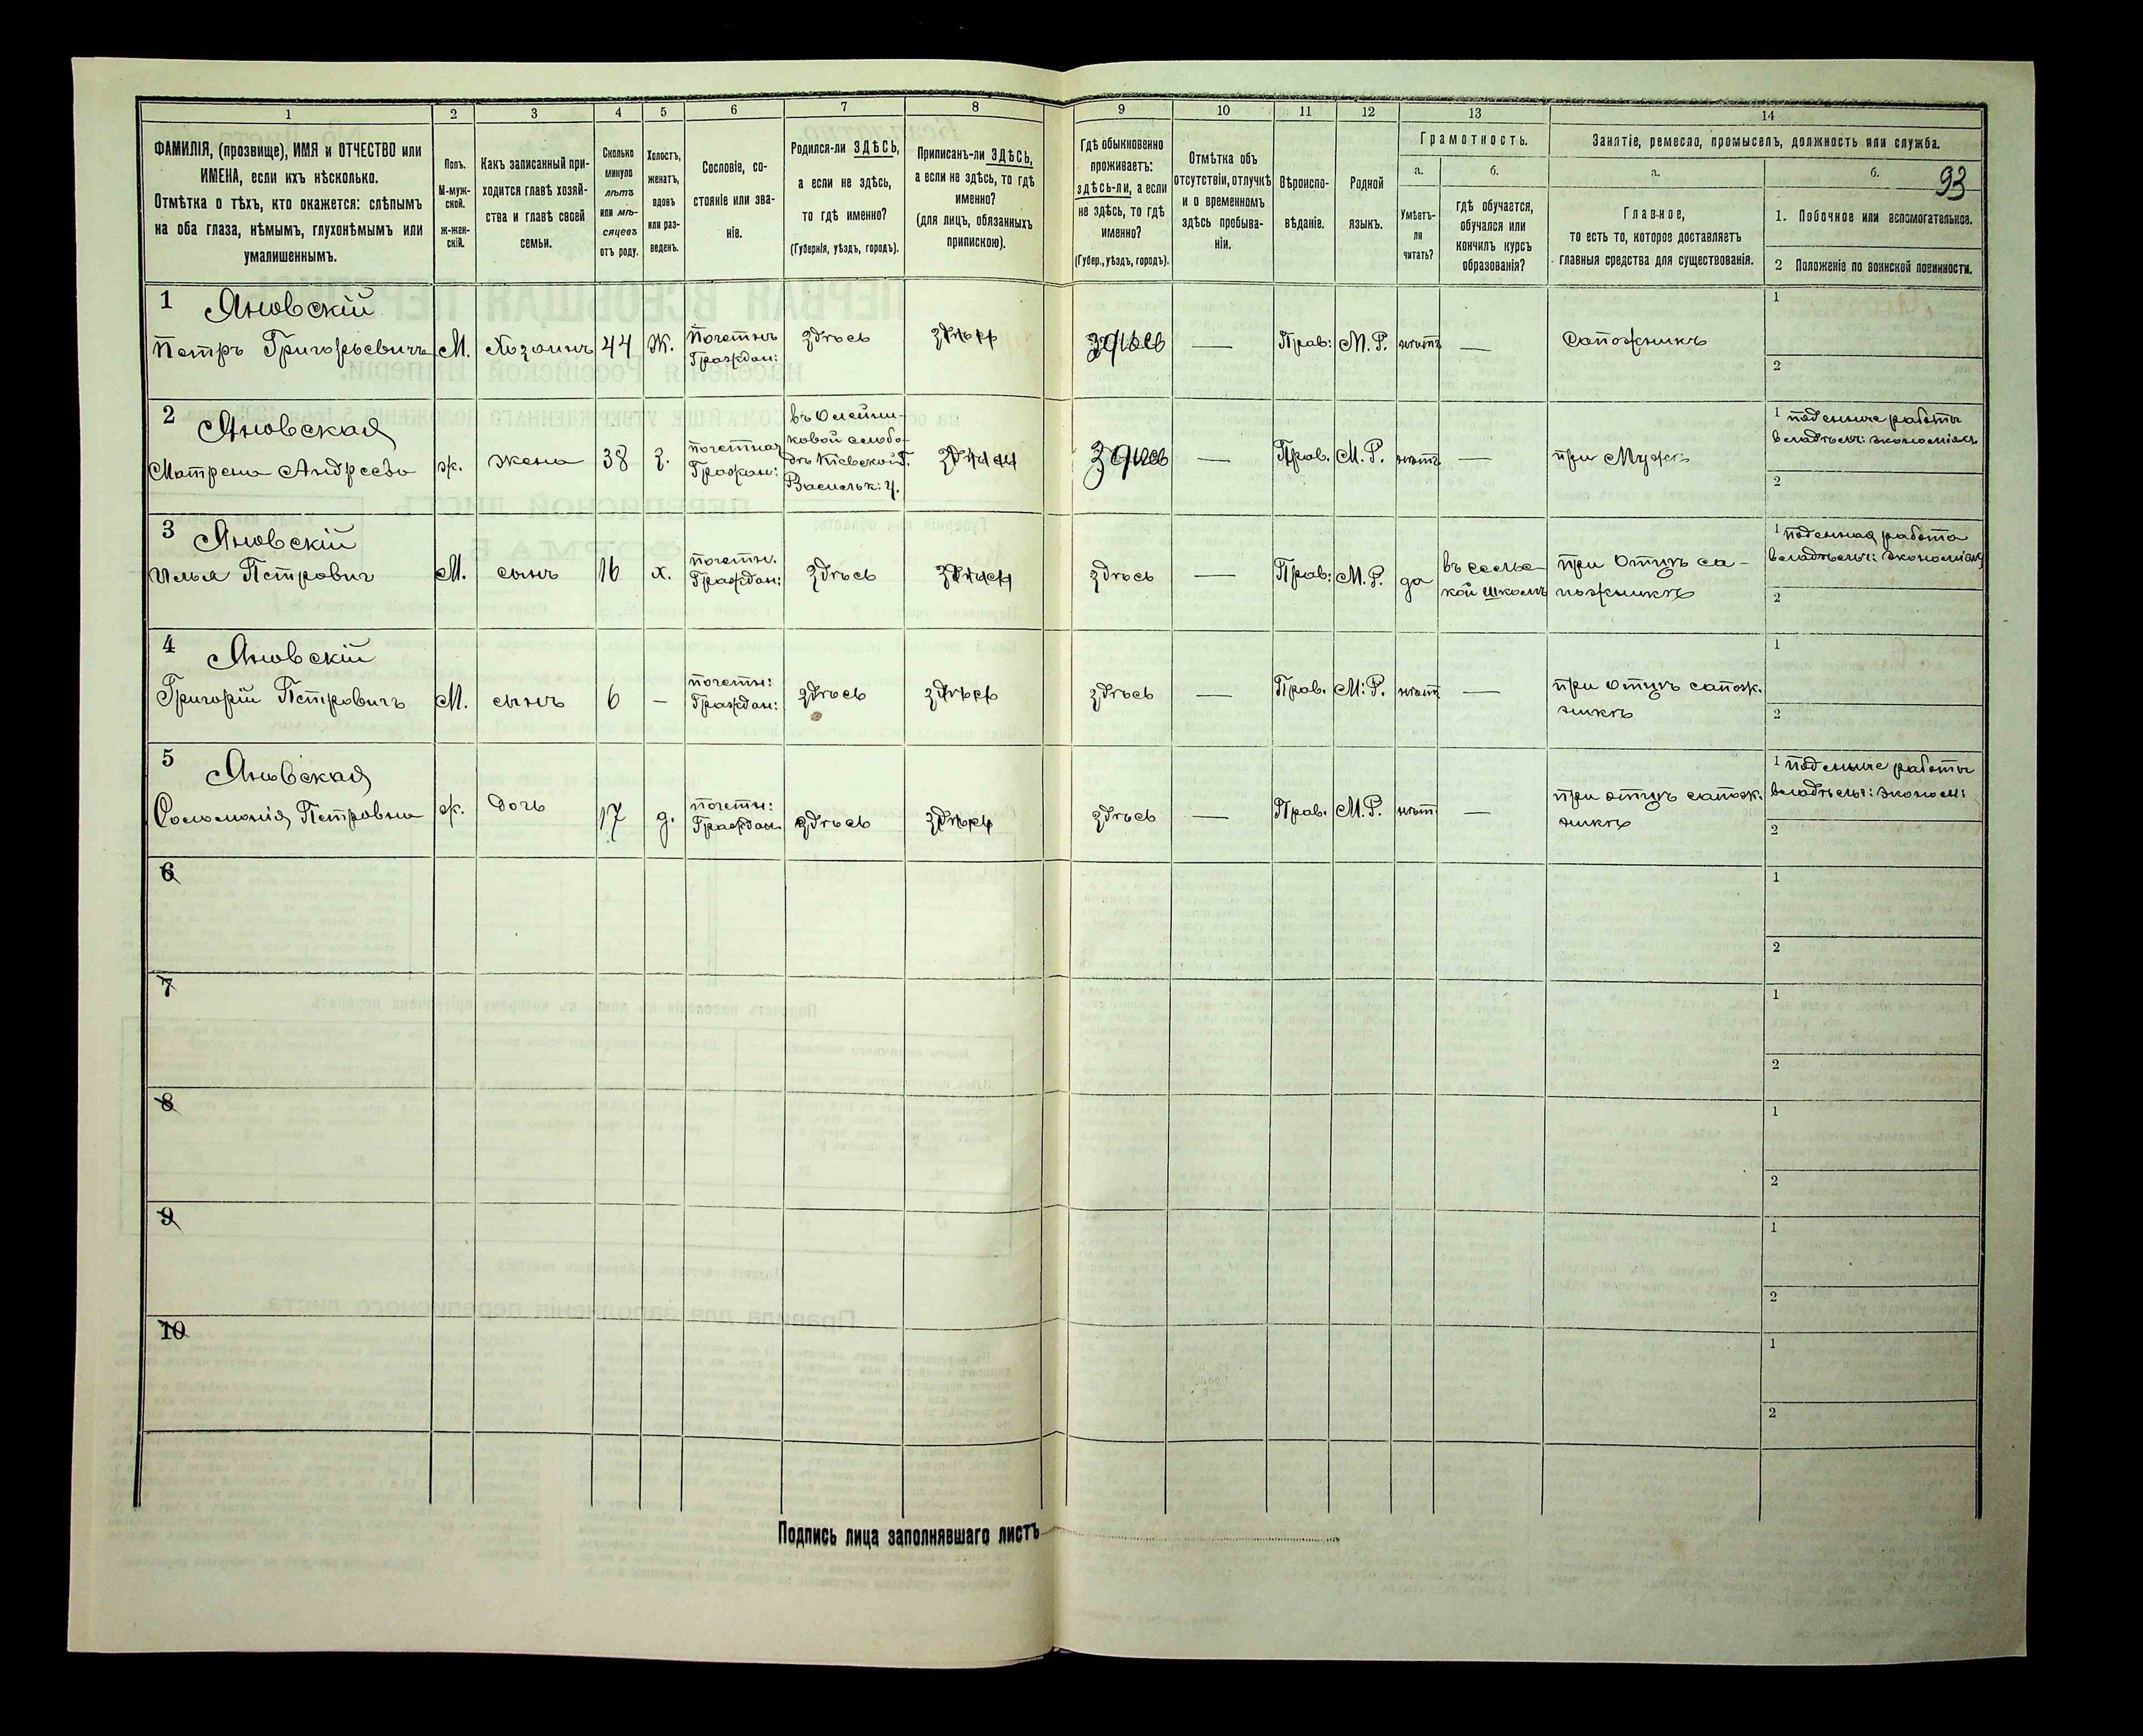 1
2
3
4
5
6
7
8
9
10
11
12
13
14
ФАМИЛІЯ, (прозвище), ИМЯ и ОТЧЕСТВО или
ИМЕНА, если ихъ нѣсколько.
Отмѣтка о тѣхъ, кто окажется: слѣпымъ
на оба глаза, нѣмымъ, глухонѣмымъ или
умалишеннымъ.
Полъ.
М-муж-
ской.
Ж-жен-
скій.
Какъ записанный при-
ходится главѣ хозяй-
ства и главѣ своей
семьи.
Сколько
минуло
лѣтъ
или мѣ-
сяцевъ
отъ роду.
Холостъ,
женатъ,
вдовъ
или раз-
веденъ.
Сословіе, со-
стояніе или зва-
ніе.
Родился-ли ЗДѢСЬ,
а если не здѣсь,
то гдѣ именно?
(Губернія, уѣздъ, городъ).
Приписанъ-ли ЗДѢСЬ,
а если не здѣсь, то гдѣ
именно?
(для лицъ, обязанныхъ
припискою).
Гдѣ обыкновенно
проживаетъ:
здѣсь-ли, а если
не здѣсь, то гдѣ
именно?
(Губер., уѣздъ, городъ).
Отмѣтка объ
отсутствіи, отлучкѣ
и о временномъ
здѣсь пребыва-
ніи.
Вѣроиспо-
вѣданіе.
Родной
языкъ.
Грамотность.
а.
Умѣетъ-
ли
читать?
б.
гдѣ обучается,
обучался или
кончилъ курсъ
образованія?
Занятіе, ремесло, промыселъ, должность или служба.
а.
Главное,
то есть то, которое доставляетъ
главныя средства для существованія.
б.
93
1. Побочное или вспомогательное.
2 Положеніе по воинской повинности.
1 Яновскій
Петръ Григорьевичъ
М.
Хозяинъ
44
Ж.
Почетнъ
Граждан:
здѣсь
здѣсь
здѣсь
—
Прав:
М. Р.
нѣтъ
—
Сапожникъ
1
2
2 Яновская
Матрена Андреева
ж.
жена
38
З.
почетная
Гражан:
въ Олейни-
ковой слобо-
дѣ Кіевской Г.
Васильк: У.
здѣсь
здѣсь
—
Прав.
М. Р.
нѣтъ
—
при Мужѣ
1 поденные работы
владѣльч: экономіяхъ
2
3 Яновскій
Илья Петрович
М.
сынъ
16
х.
почетн.
Граждан:
здѣсь
здѣсь
здѣсь
—
Прав:
М. Р.
да
въ сельс-
кой школѣ
при Отцѣ са-
пожникѣ
1 поденная работа
владѣльч: экономіях
2
4 Яновскій
Григорій Петровичъ
М.
сынъ
6
—
почетн:
Граждан:
здѣсь
здѣсь
здѣсь
—
Прав.
М. Р.
нѣт
—
при отцѣ сапож.
никѣ
1
2
5 Яновская
Соломонія Петровна
ж.
дочь
17
д.
почетн:
Граждан.
здѣсь
здѣсь
здѣсь
—
Прав.
М. Р.
нѣт
—
при отцѣ сапож.
никѣ
1 поденные работы
владѣльч: эконом:
2
6
1
2
7
1
2
8
1
2
9
1
2
10
1
2
Подпись лица заполнявшаго листъ